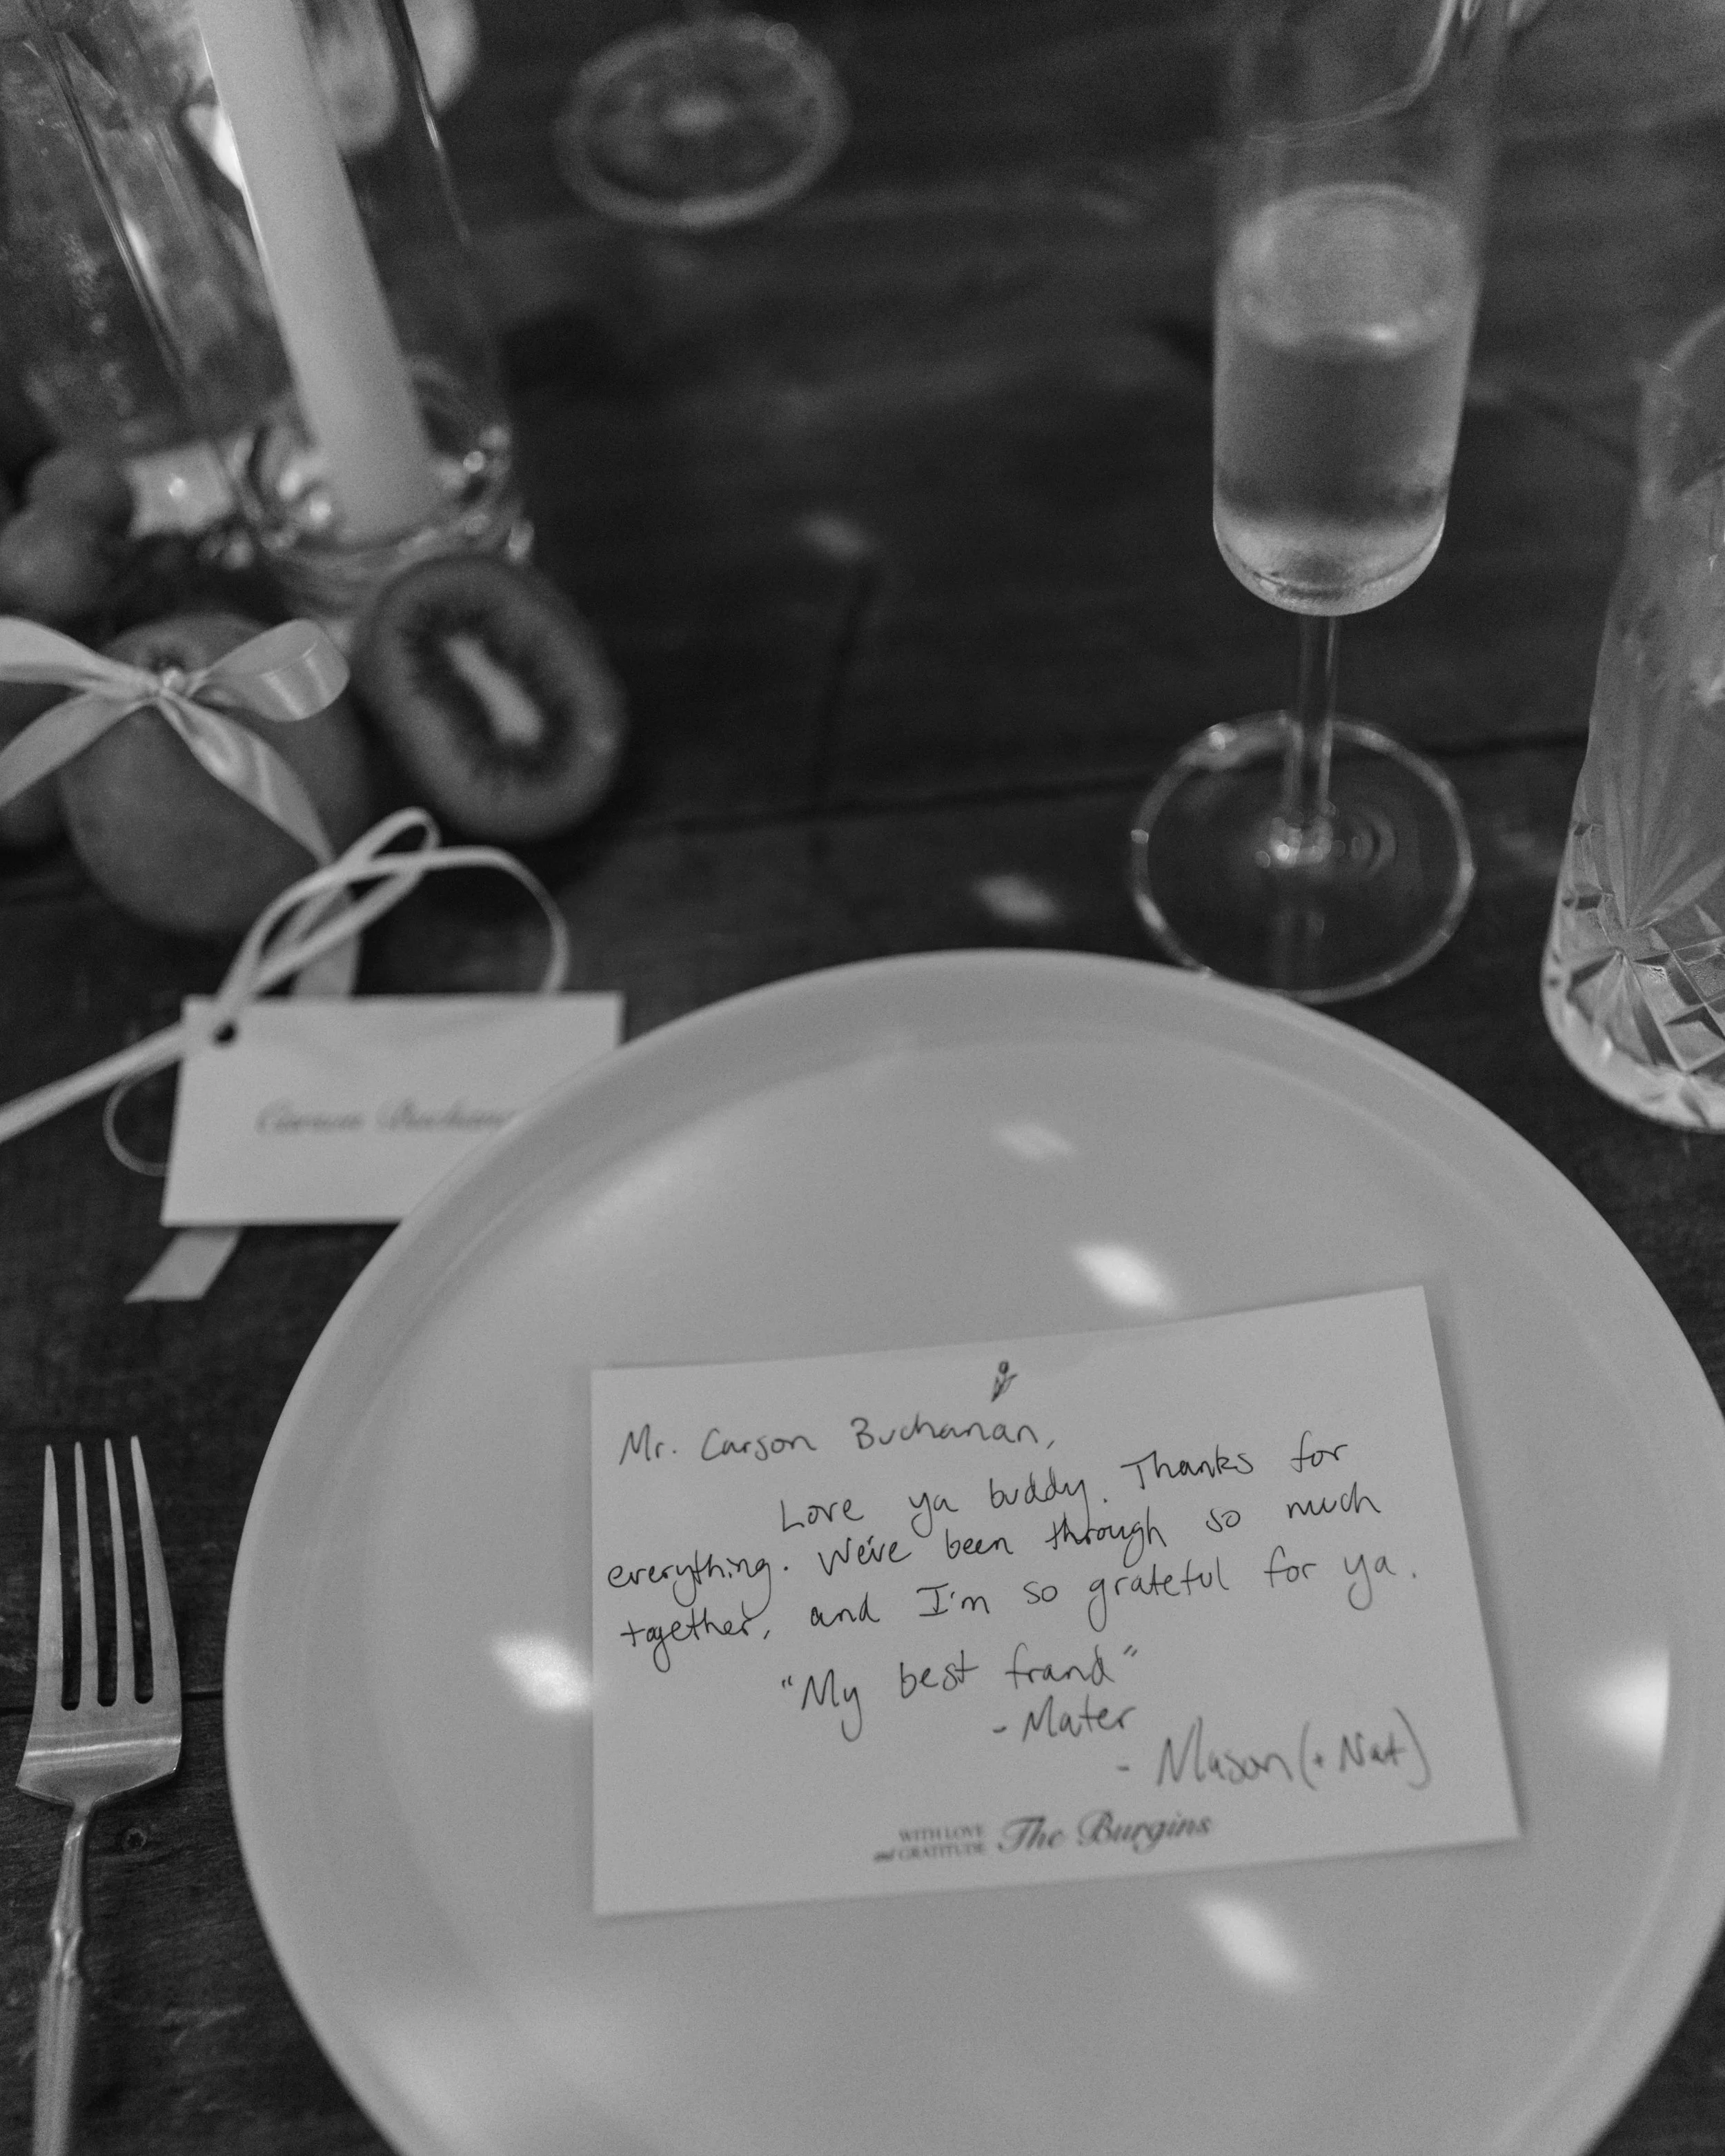 Carson Buchanan
Mr. Carson Buchanan,
Love ya buddy. Thanks for
everything. We've been through so much
together, and I'm so grateful for ya.
"My best frand"
- Mater
- Mason (+ Nat)
WITH LOVE
and GRATITUDE The Burgins